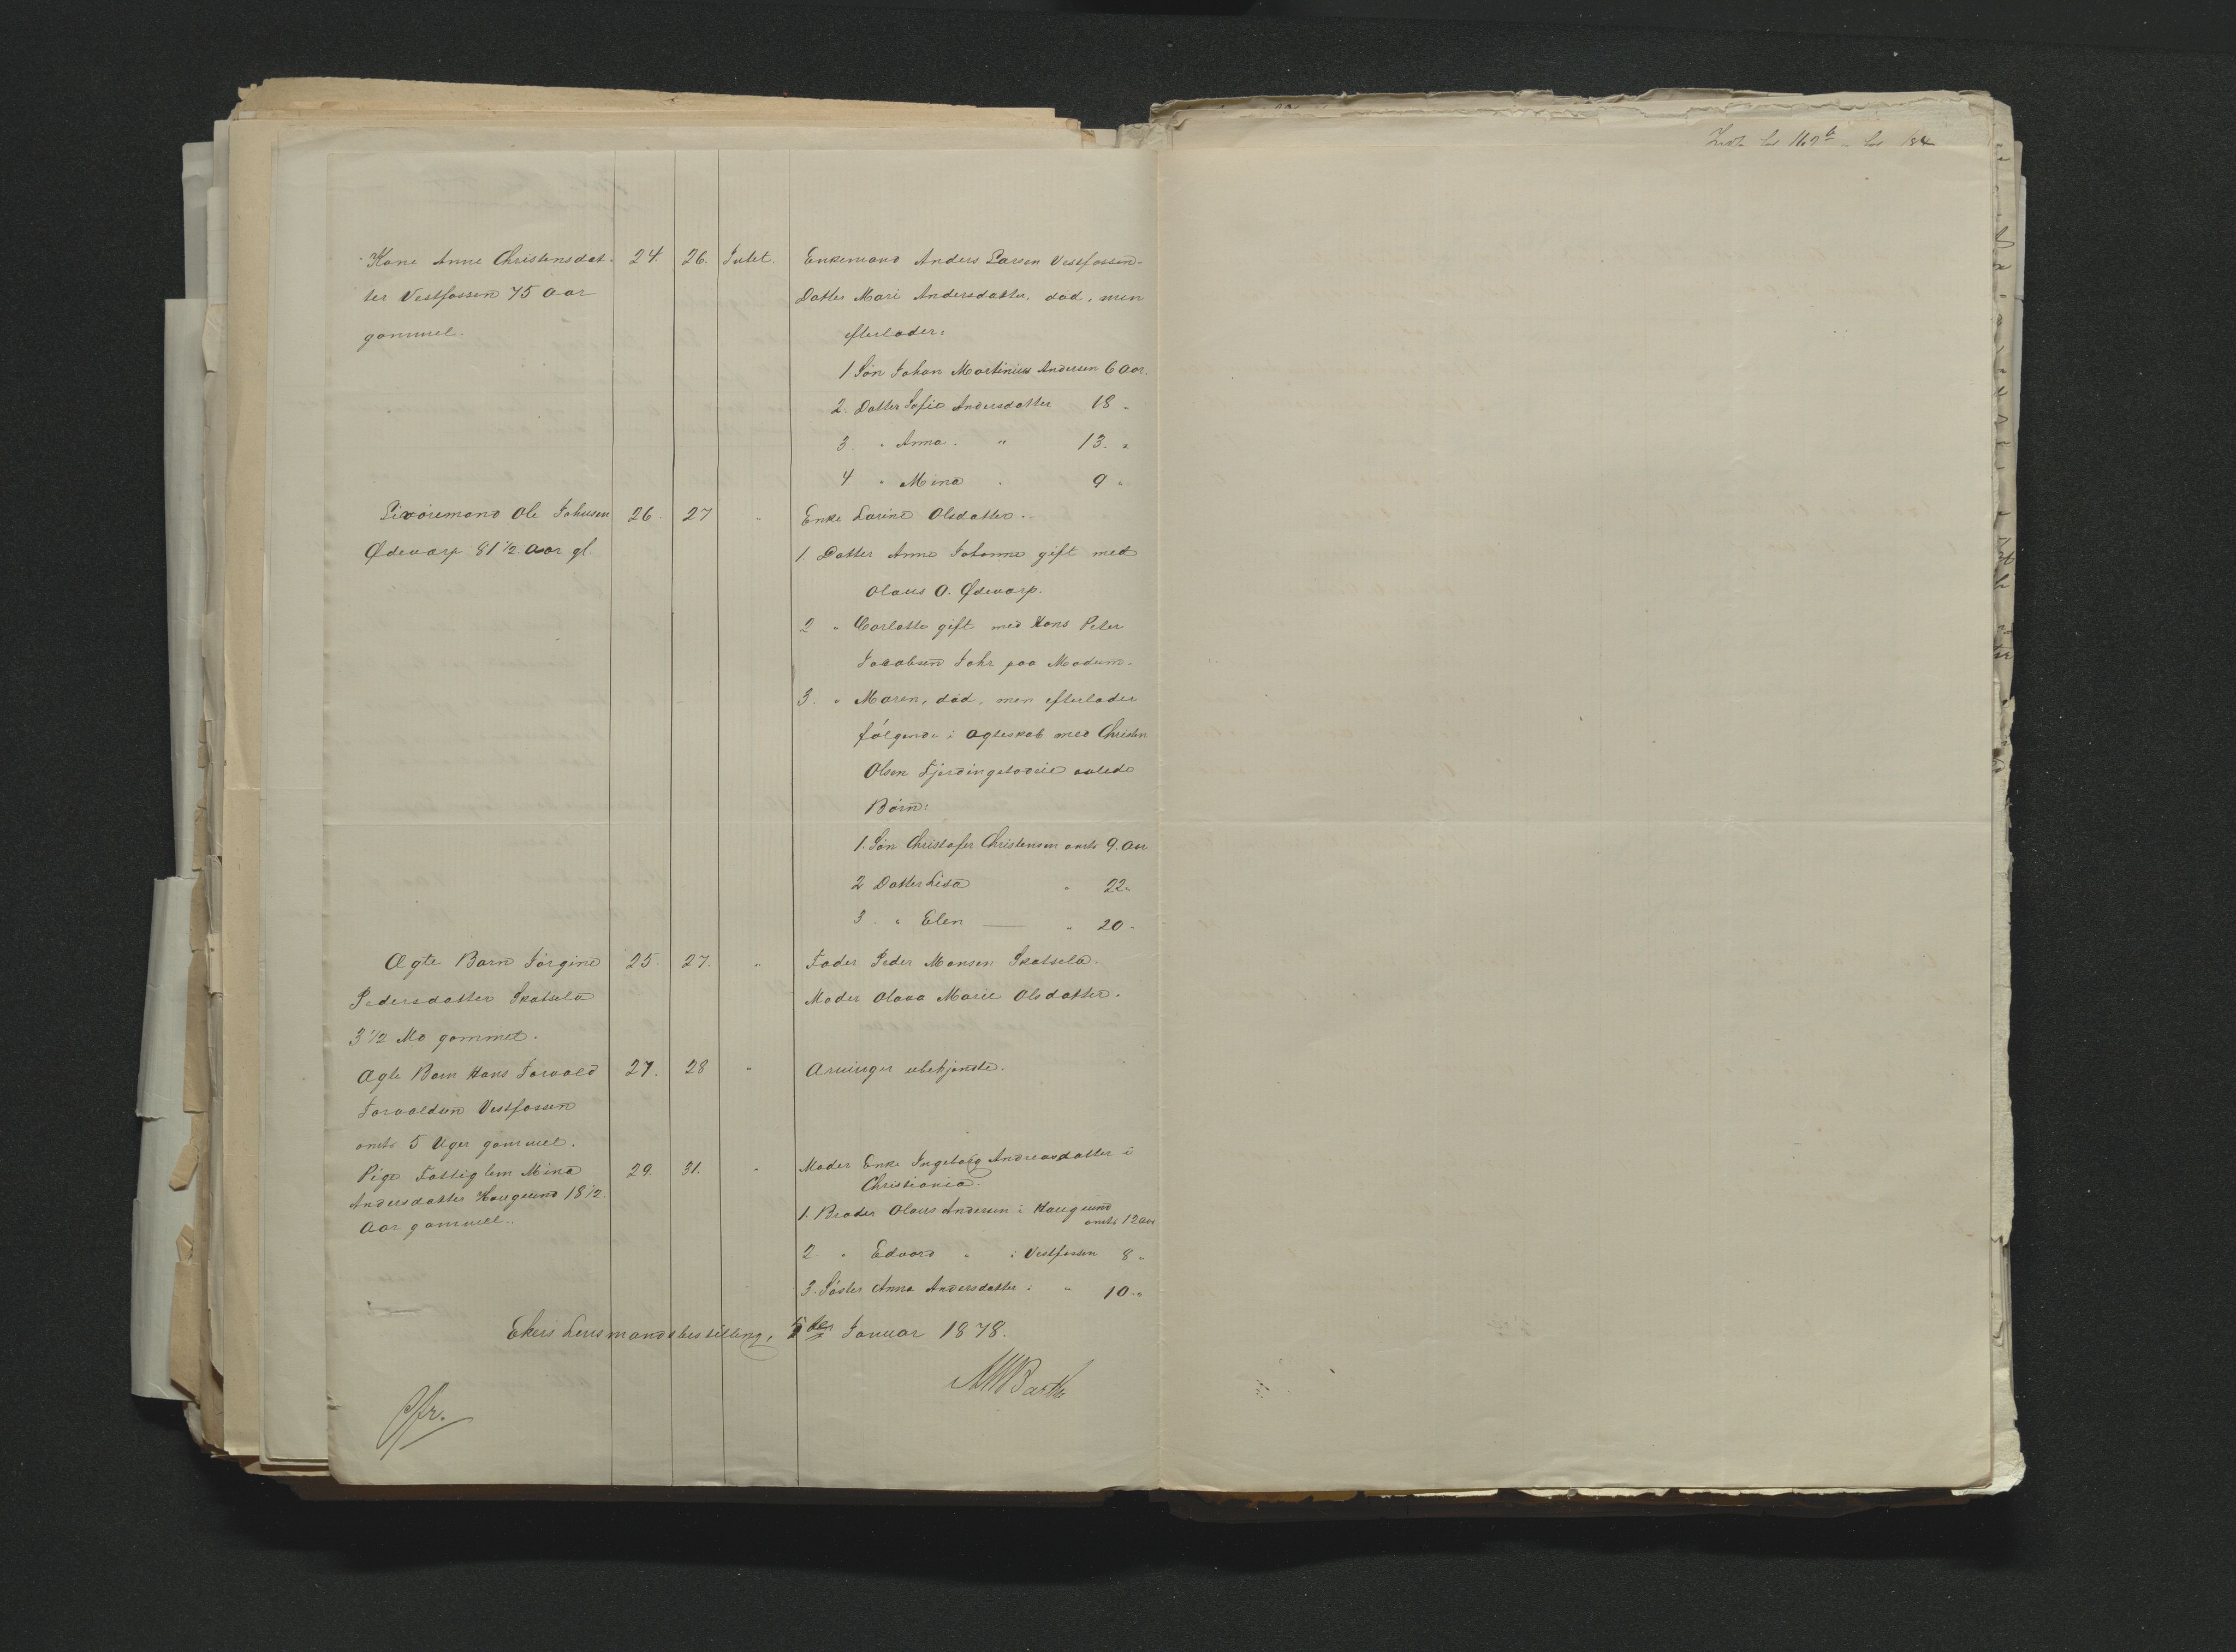 Kone Anne Christensdat- 24. 26. Intet. Enkemand Anders Larsen Vestfossen-
ter Vestfossen 75 Aar Datter Mari Andersdatter, død, men
gammel. efterlader:
1 Søn Johan Martinius Andersen 6 Aar.
2. Datter Sofie Andersdatter 18 "
3. " Anna. " 13. "
4 " Mina " 9 "
Livøremand Ole Johnsen 26. 27 " Enke Larine Olsdatter.
Ødevarp 81 1/2 Aar gl. 1. Datter Anne Johanne gift med
Olaus O. Ødevarp.
2 " Carlotte gift med Hans Peter
Jacobsen Fohr paa Modum.
3. " Maren, død, men efterlader
følgende i Ægteskab med Christen
Olsen avlede
Børn:
1. Søn Christofer Christensen omtr 9. Aar
2 Datter Lisa " 22 "
3. " Elen — " 20 "
Ægte Barn Jørgine 25. 27. " Fader Peder Monsen Skatsela.
Pedersdatter Skatsela Moder Olava Marie Olsdatter.
3 1/2 Mo gammel.
Ægte Barn Hans Torvald 27. 28 " Arvinger ubekjendte.
Torvaldsen Vestfossen
omtr 5 Uger gammel.
Pige Fattiglem Mina 29. 31. " Moder Enke Ingeborg Andreasdatter i
Andersdatter Haugsund 18 1/2 Christiania.
Aar gammel. 1. Broder Olaus Andersen i Haugsund
omtr 12 Aar
2. " Edvard " i Vestfossen 8 "
3. Søster Anna Andersdatter i " 10 "
Ekers Lensmandsbestilling, 5te Januar 1878.
Barth